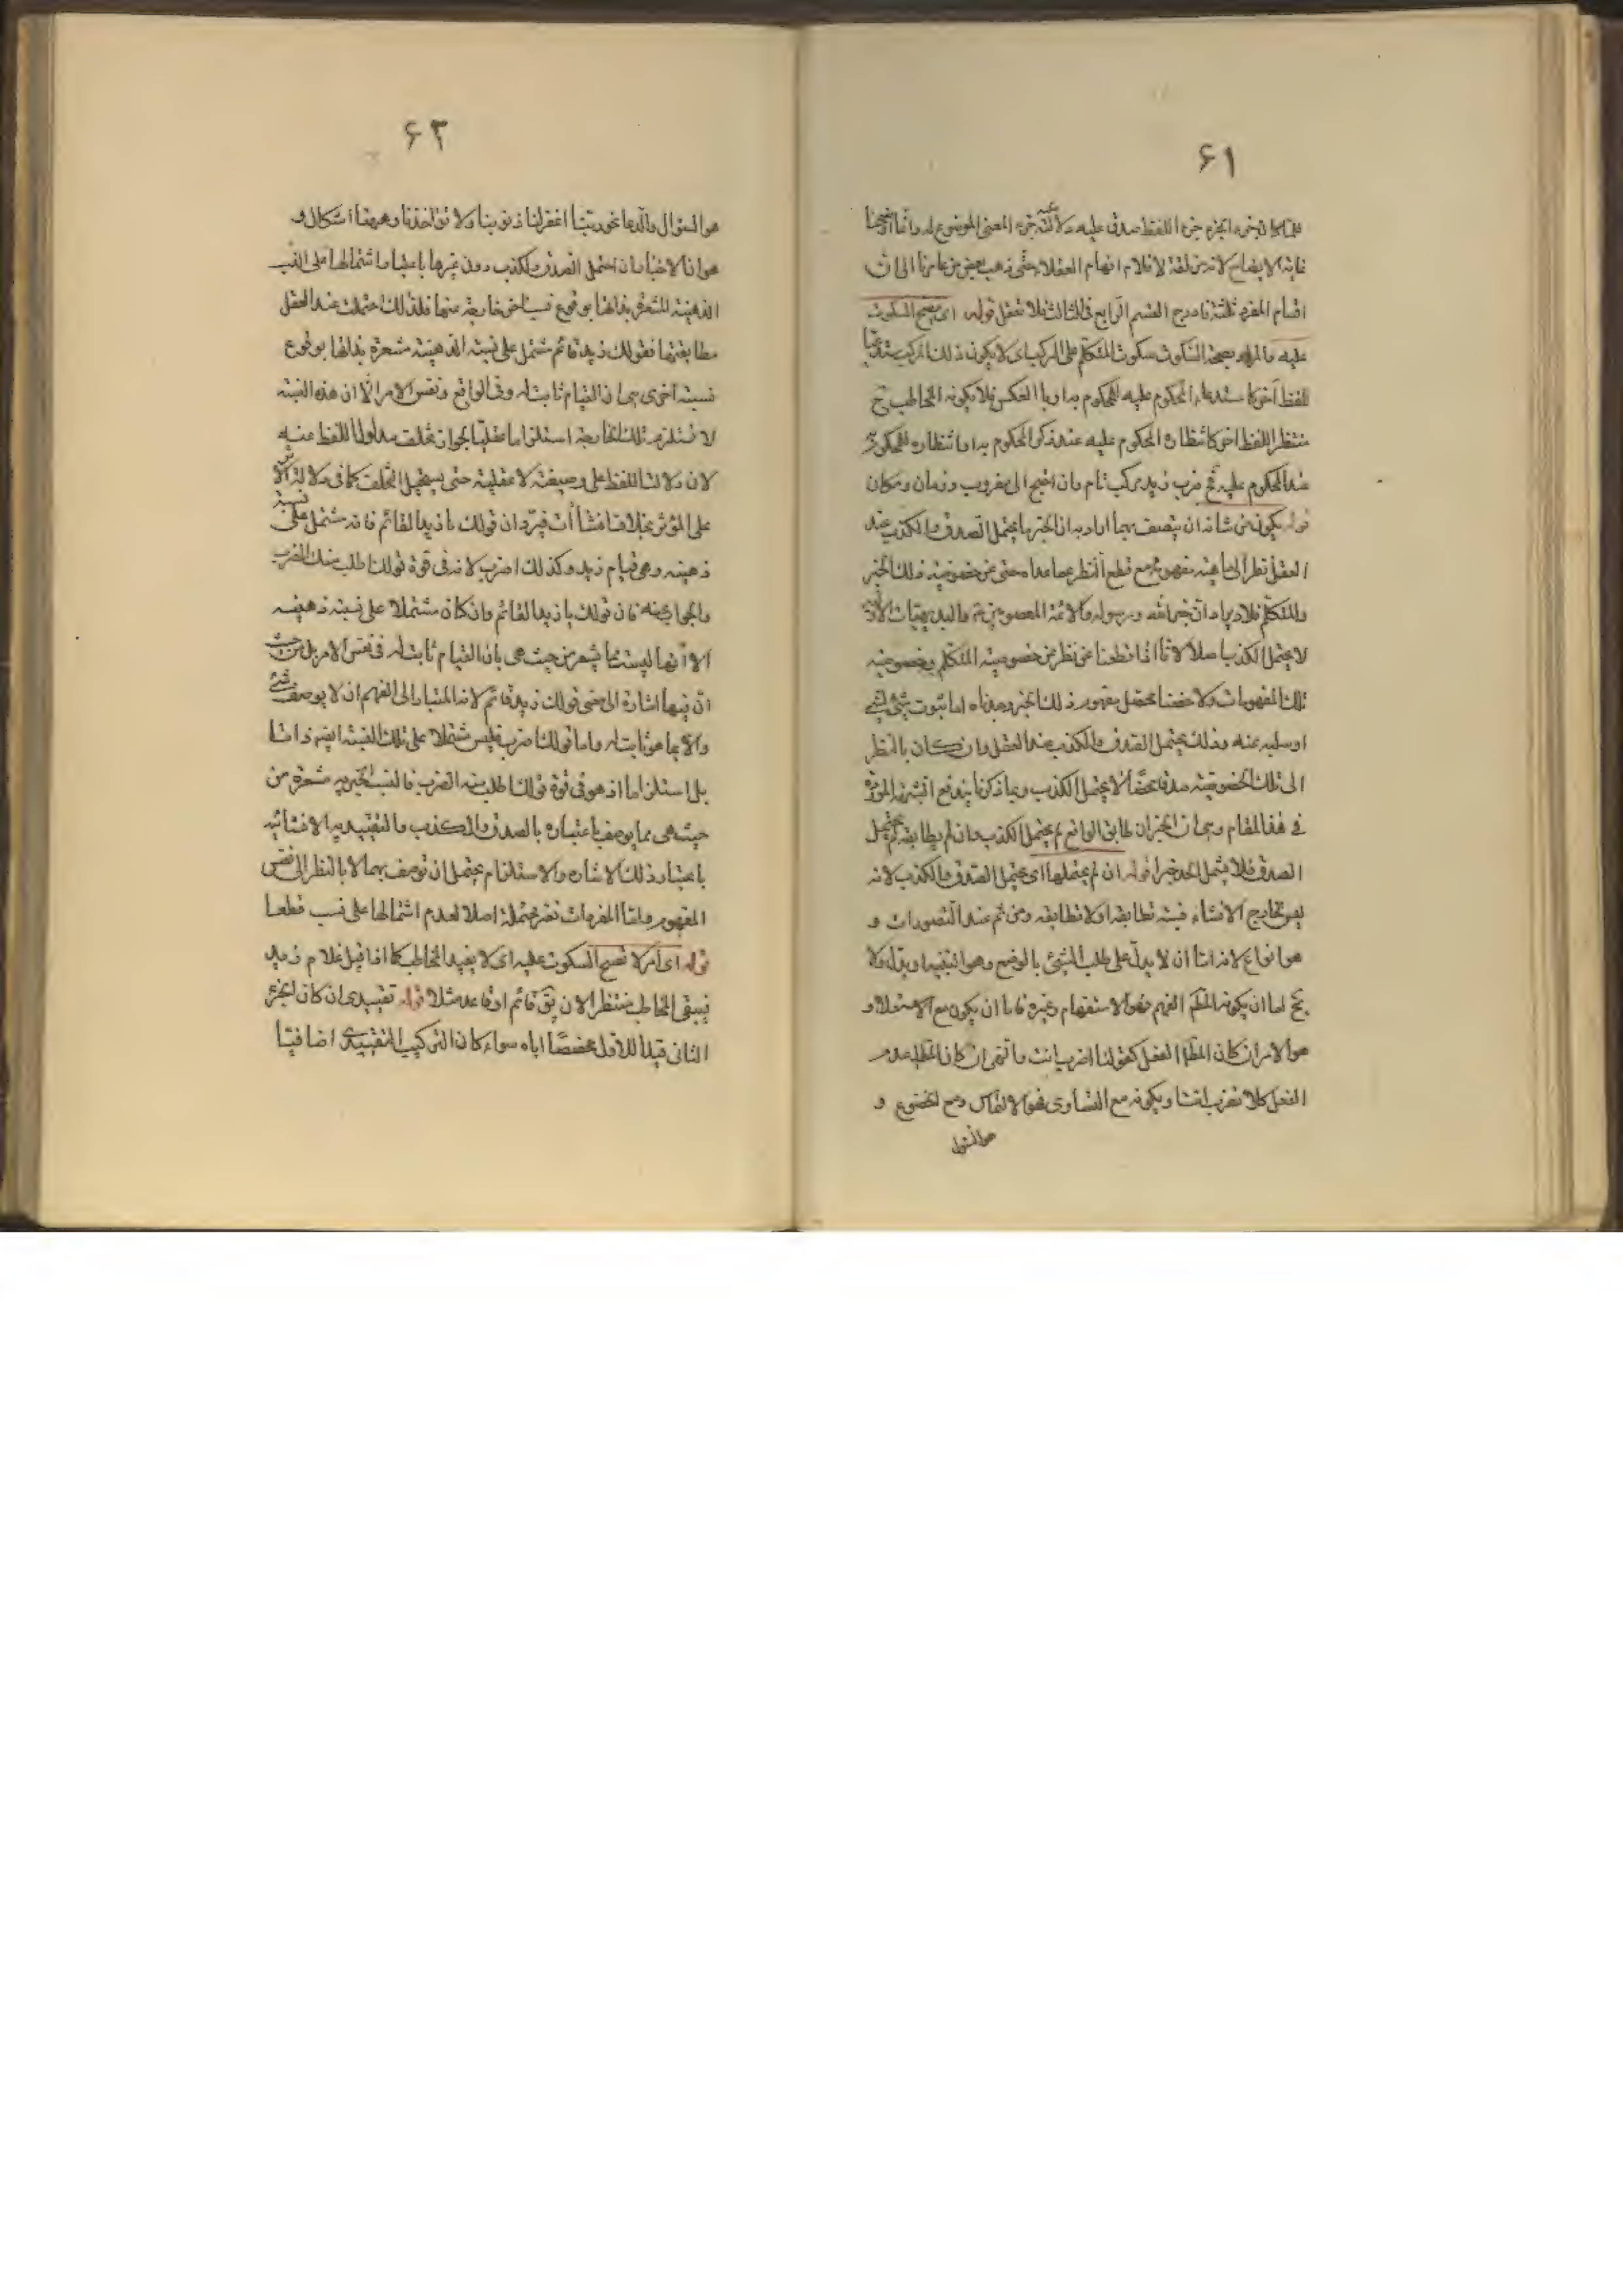 ۶۱
غاية الايضاح لانه مزلقة لاقلام افهام العقلاء حتى ذهب بعض من عاصرنا الى ان
اقسام المفرد ثلثة فادرج القسم الرابع في الثالث فلا تغفل قوله اى يصح السكوت
عليه والمراد بصحة السكوت سكوت المتكلم على المركب اى لا يكون ذلك المركب مستدعيا
للفظ آخر كاستدعاء المحكوم عليه المحكوم به او بالعكس فلا يكون المخاطب ح
منتظرا للفظ آخر كانتظاره المحكوم عليه عند ذكر المحكوم به او انتظاره المحكوم به
عند المحكوم عليه فح ضرب زيد مركب تام وان احتيج الى مضروب وزمان ومكان
قوله يكون من شانه ان يتصف بهما اراد به ان الخبر ما يحتمل الصدق والكذب عند
العقل نظرا الى ماهية مفهومه مع قطع النظر عما عداه حتى عن خصوصية ذلك الخبر
والمتكلم فلا يراد ان خبر الله ورسوله والائمة المعصومين والبديهيات
لا يحتمل الكذب اصلا لانا اذا قطعنا عن نظر عن خصوصية المتكلم وخصوصية
تلك المفهومات ولاحظنا محصل مفهوم ذلك الخبر وجدناه اما ثبوت شئ لشئ
او سلبه عنه وذلك يحتمل الصدق والكذب عند العقل وان كان بالنظر
الى تلك الخصوصية صدقا محضا لا يحتمل الكذب وبما ذكرنا يندفع الشبهة الموردة
في هذا المقام وهى ان الخبر ان طابق الواقع لم يحتمل الكذب وان لم يطابقه لم يحتمل
الصدق فلا يشمل الحد خبرا قوله ان لم يحتملها اى يحتمل الصدق والكذب لانه
ليس لخارج الانشاء نسبة تطابقه او لا تطابقه ومن ثم عند التصورات و
هو انواع لانه اما ان لا يدل على طلب الشئ بالوضع وهو التنبيه او يدل ولا
يخ اما ان يكون المط الفهم فهو الاستفهام وغيره فاما ان يكون مع الاستعلاء و
هو الامر ان كان المط الفعل كقولنا اضرب انت والنهى ان كان المط عدم
الفعل كلا تضرب انت او يكون مع التساوى فهو الالتماس ومع الخضوع و
هو السؤال
۶۲
هو السؤال والدعا نحو ربنا اغفر لنا ذنوبنا ولا تؤاخذنا وههنا اشكال و
هو ان الاخبار ان احتمل الصدق والكذب دون غيرها باعتبار اشتمالها على النسب
الذهنية المشعرة بذاتها بوقوع نسب اخر خارجة عنها فلذلك احتملت عند العقل
مطابقتها فقولك زيد قائم مشتمل على نسبة الذهنية مشعرة بذاتها بوقوع
نسبة اخرى هى ان القيام ثابت له وفى الواقع ونفس الامر الا ان هذه النسبة
لا تستلزم تلك الخارجة استلزاما عقليا لجواز تخلف مدلول اللفظ عنه
لان دلالت اللفظ على وضعية لا عقلية حتى يستحيل التخلف كما فى دلالة الاثر
على المؤثر بخلاف انشاآت فيرد ان قولك يا زيد القائم فانه مشتمل على نسبة
ذهنية وهى قيام زيد وكذلك اضرب لانه فى قوة قولك اطلب منك الضرب
والجواب عنه فان قولك يا زيد القائم وان كان مشتملا على نسبة ذهنية
الا انها ليست مما يشعر من حيث هى بان القيام ثابت له فى نفس الامر بل من حيث
ان فيها اشارة الى معنى قولك زيد قائم لانه المتبادر الى الفهم ان لا يوصف شئ
والا بما هو ثابت له واما قولك اضرب فليس مشتملا على تلك النسبة ايضا ذاتا
بل استلزاما اذ هو فى قوة قولك اطلب منه الضرب فالنسب الخبرية مشعرة من
حيث هى بما يوصف باعتباره بالصدق والكذب والتقييدية والانشائية
باعتبار ذلك الاشارة والاستلزام يحتمل ان توصف بهما لا بالنظر الى نفس
المفهوم واما المفردات فغير محتملة اصلا لعدم اشتمالها على نسب قطعا
قوله اى امر لا تصح السكوت عليه اى لا يفيد المخاطب كما اذا قيل غلام زيد
فيبقى المخاطب منتظرا لان يق قائم او قاعد مثلا قوله تقييدى ان كان الجزء
الثانى قيدا للاول مخصصا اياه سواء كان التركيب التقييدى اضافيا